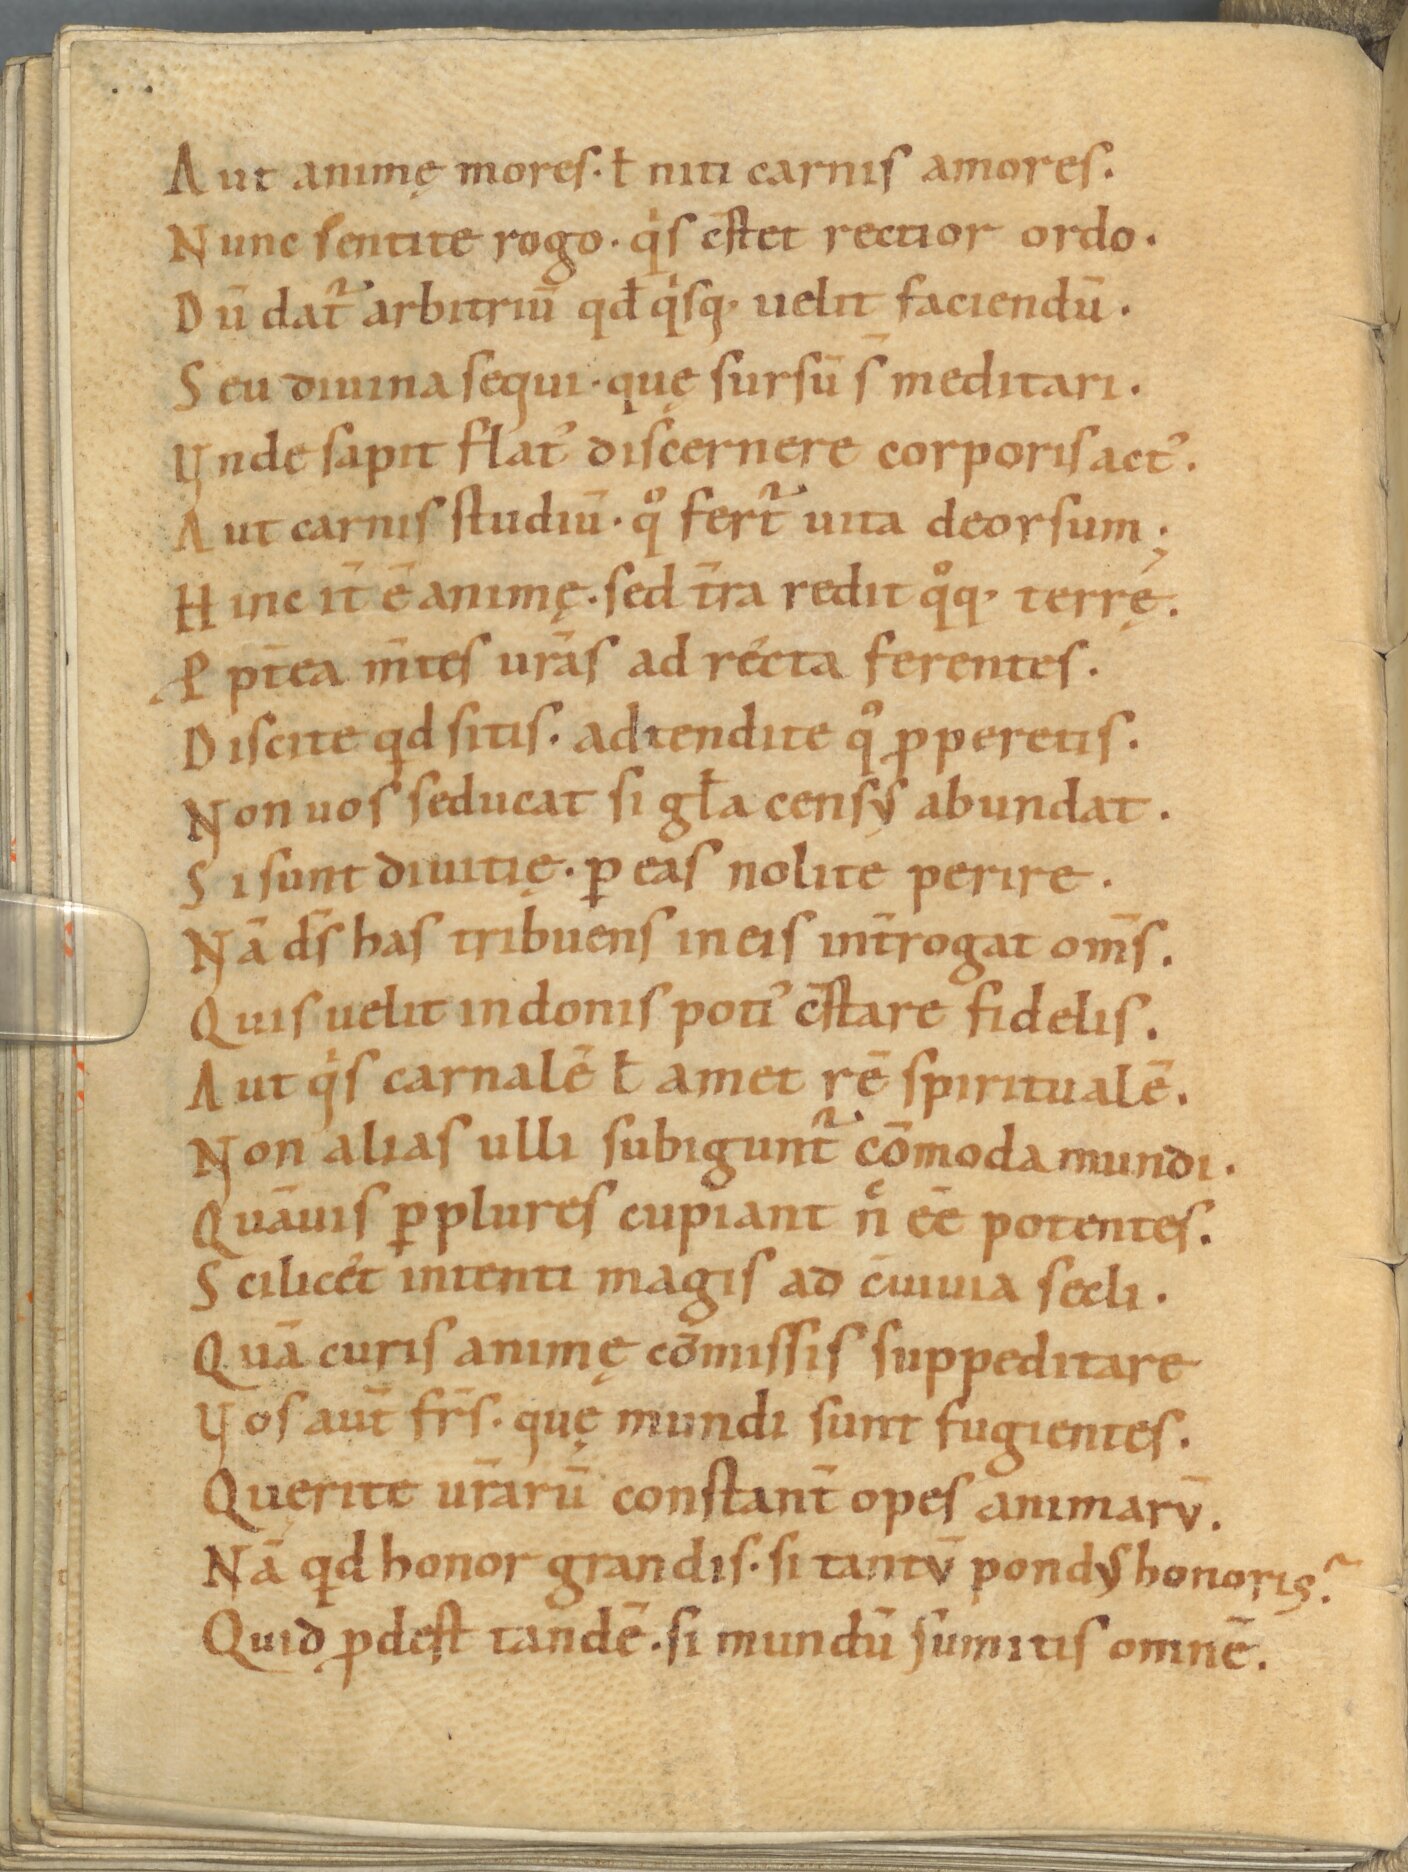 Aut animę mores. ł niti carnis amores.
Nunc sentite rogo. qis c̄stet rectior ordo.
Dū dat᷑ arbitriū qđ qisq; uelit faciendū.
Seu diuina sequi. quę sursū s̄ meditari.
Vnde sapit flatꝰ discernere corporis actꝰ.
Aut carnis studiū. qͦ fert᷑ uita deorsum;
Hinc it̄ ē animę. sed t̄ra redit qͦq; terrę.
Ꝓpt̄ea m̄tes urās ad recta ferentes.
Discite qd sitis. adtendite qͦ ꝓperetis.
Non uos seducat si gła censꝰ abundat.
Si sunt diuitię. ꝑ eas nolite perire.
Nā ds̄ has tribuens in eis int̄rogat om̄s.
Quis uelit in donis potiꝰ c̄stare fidelis.
Aut qis carnalē ł amet rē spiritualē.
Non alias ulli subigunt᷑ cōmoda mundi.
Quāuis ꝑplures cupiant n̄ ēē potentes.
Scilicet intenti magis ad c̄uiuia secli.
Quā curis animę cōmissis suppeditare
Vos aut̄ frs̄. quę mundi sunt fugientes.
Quęrite ur̄arū constant̄ opes animarū.
Nā qd honor grandis. si tantū pondꝰ honoris?
Quid ꝓdest tandē. si mundū sumitis omnē.